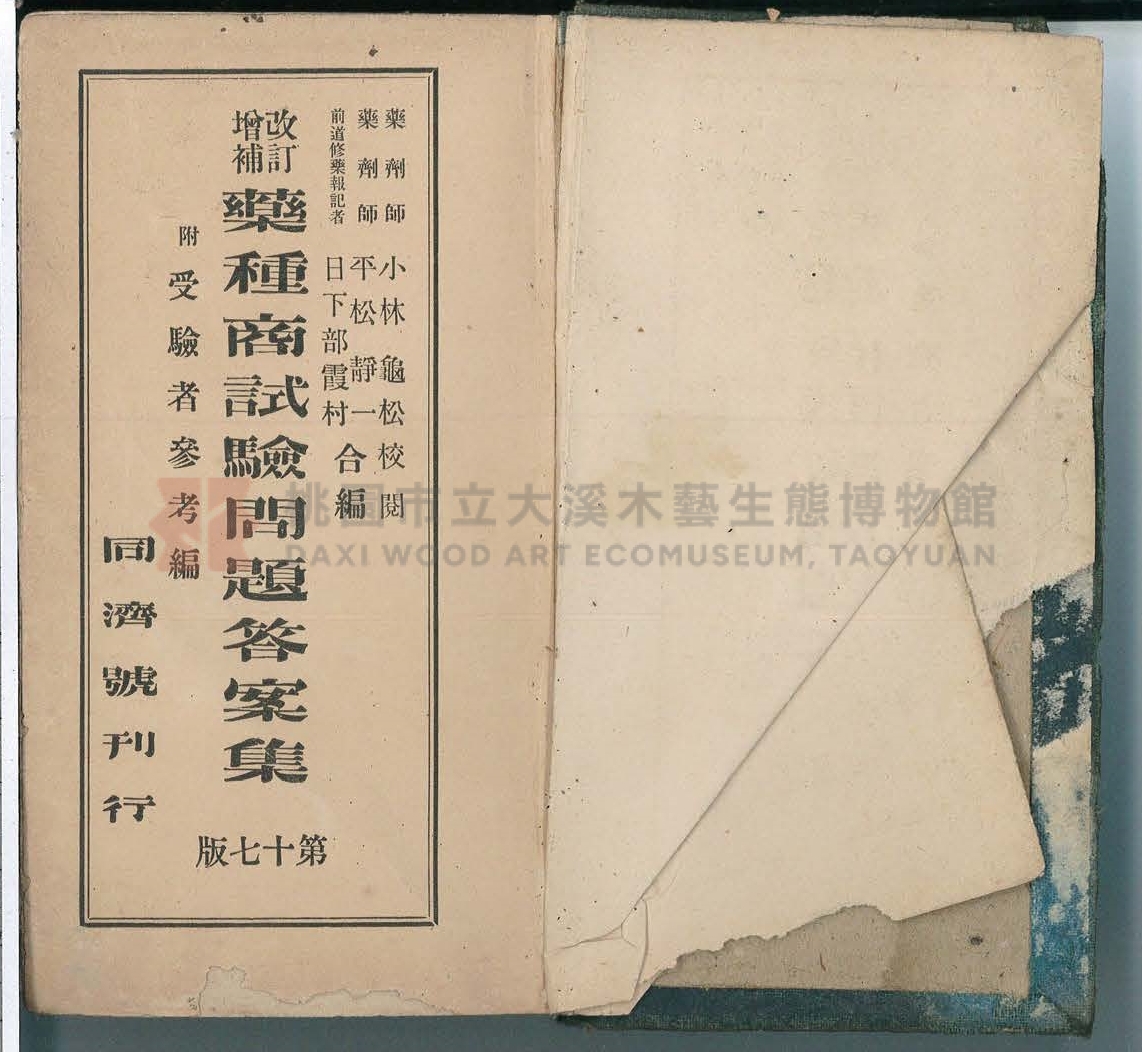 藥劑師 小林龜松校閱
藥劑師 平松靜一
前道修藥報記者 日下部霞村
合編
改訂
增補
藥種商試驗問題答案集
第十七版
附受驗者參考編
同濟號刊行
桃園市立大溪木藝生態博物館
DAXI WOOD ART ECOMUSEUM, TAOYUAN